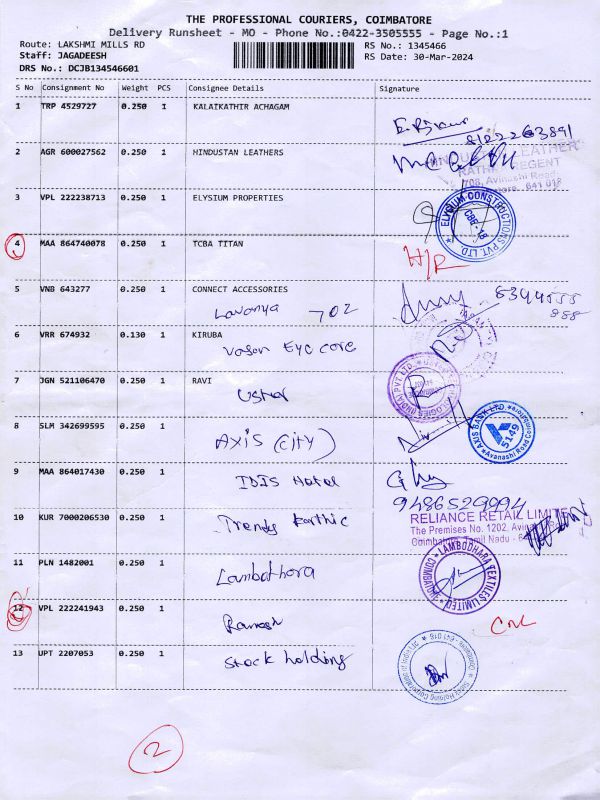 THE PROFESSIONAL COURIERS, COIMBATORE
Delivery Runsheet - MO - Phone No.:0422-3505555 - Page No.:1
Route: LAKSHMI MILLS RD
RS No.: 1345466
Staff: JAGADEESH
RS Date: 30-Mar-2024
DRS No.: DCJB134546601
S No Consignment No Weight PCS Consignee Details Signature
1 TRP 4529727 0.250 1 KALAIKATHIR ACHAGAM
8122263891
2 AGR 600027562 0.250 1 HINDUSTAN LEATHERS
3 VPL 222238713 0.250 1 ELYSIUM PROPERTIES
ELYSIUM CONSTRUCTIONS PVT. LTD
CBE-18
4 MAA 864740078 0.250 1 TCBA TITAN
H/R
5 VNB 643277 0.250 1 CONNECT ACCESSORIES
Lavanya 702
6 VRR 674932 0.130 1 KIRUBA
Vasan Eye care
7 JGN 521106470 0.250 1 RAVI
8 SLM 342699595 0.250 1
AXIS (CITY)
AXIS BANK LTD.
5149
9 MAA 864017430 0.250 1
IBIS Hotel
9486529994
10 KUR 7000206530 0.250 1
Trendy Karthic
RELIANCE RETAIL LIMITED
The Premises No. 1202, Avinashi Road
Coimbatore, Tamil Nadu - 6
11 PLN 1482001 0.250 1
Lambothora
LAMBODHARA TEXTILES LIMITED
COIMBATORE
12 VPL 222241943 0.250 1
Ramesh
13 UPT 2207053 0.250 1
Stock holding
2